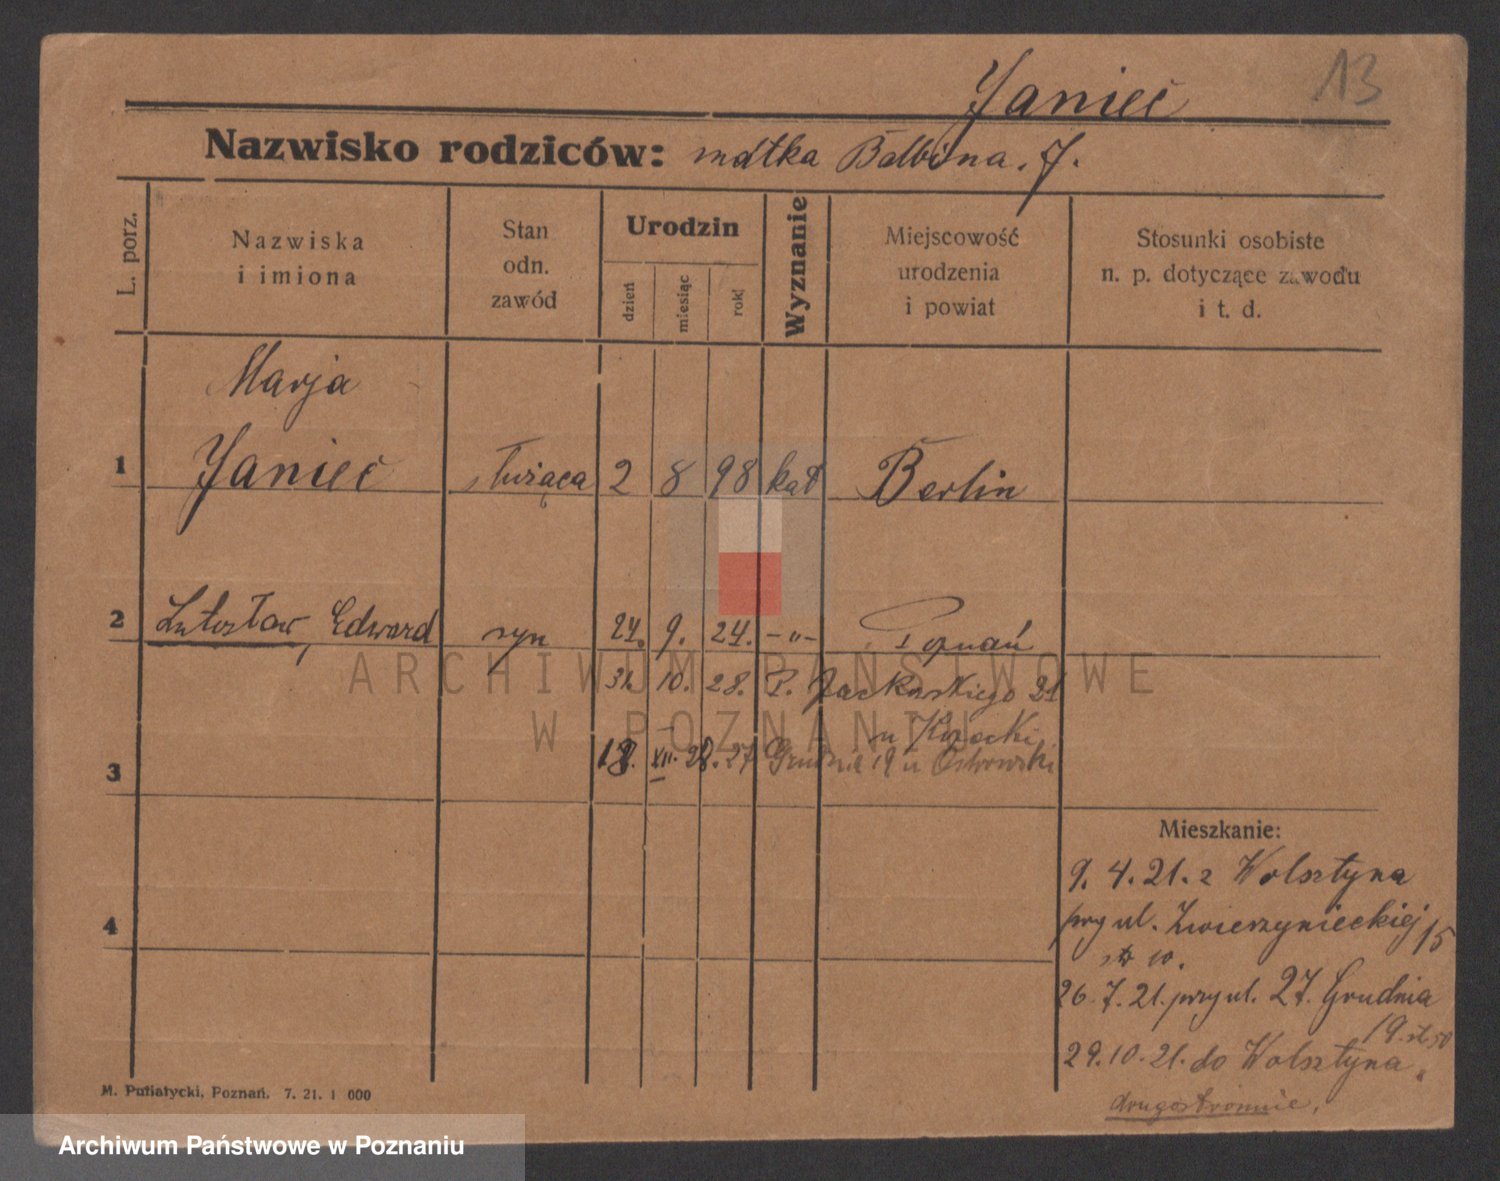 Janieć 13
Nazwisko rodziców: matka Balbina. J.
L. porz.
Nazwiska
i imiona
Stan
odn.
zawód
Urodzin
dzień
miesiąc
rok
Wyznanie
Miejscowość
urodzenia
i powiat
Stosunki osobiste
n. p. dotyczące zawodu
i t. d.
Marja
1 Janieć służąca 2 8 98 kat Berlin
2 Lutosław, Edward syn 24. 9. 24. -"- Poznań
31. 10. 28. P. Jackowskiego 21
u
3 XII. 27 Grudnia 19 u Ostrowski
Mieszkanie:
9. 4. 21. z Wolsztyna
przy ul. Zwierzynieckiej 15
10.
4
26. 7. 21. przy ul. 27. Grudnia
19.
29. 10. 21. do Wolsztyna
drugostronnie.
M. Putiatycki, Poznań. 7. 21. 1 000
ARCHIWUM PAŃSTWOWE
W POZNANIU
Archiwum Państwowe w Poznaniu